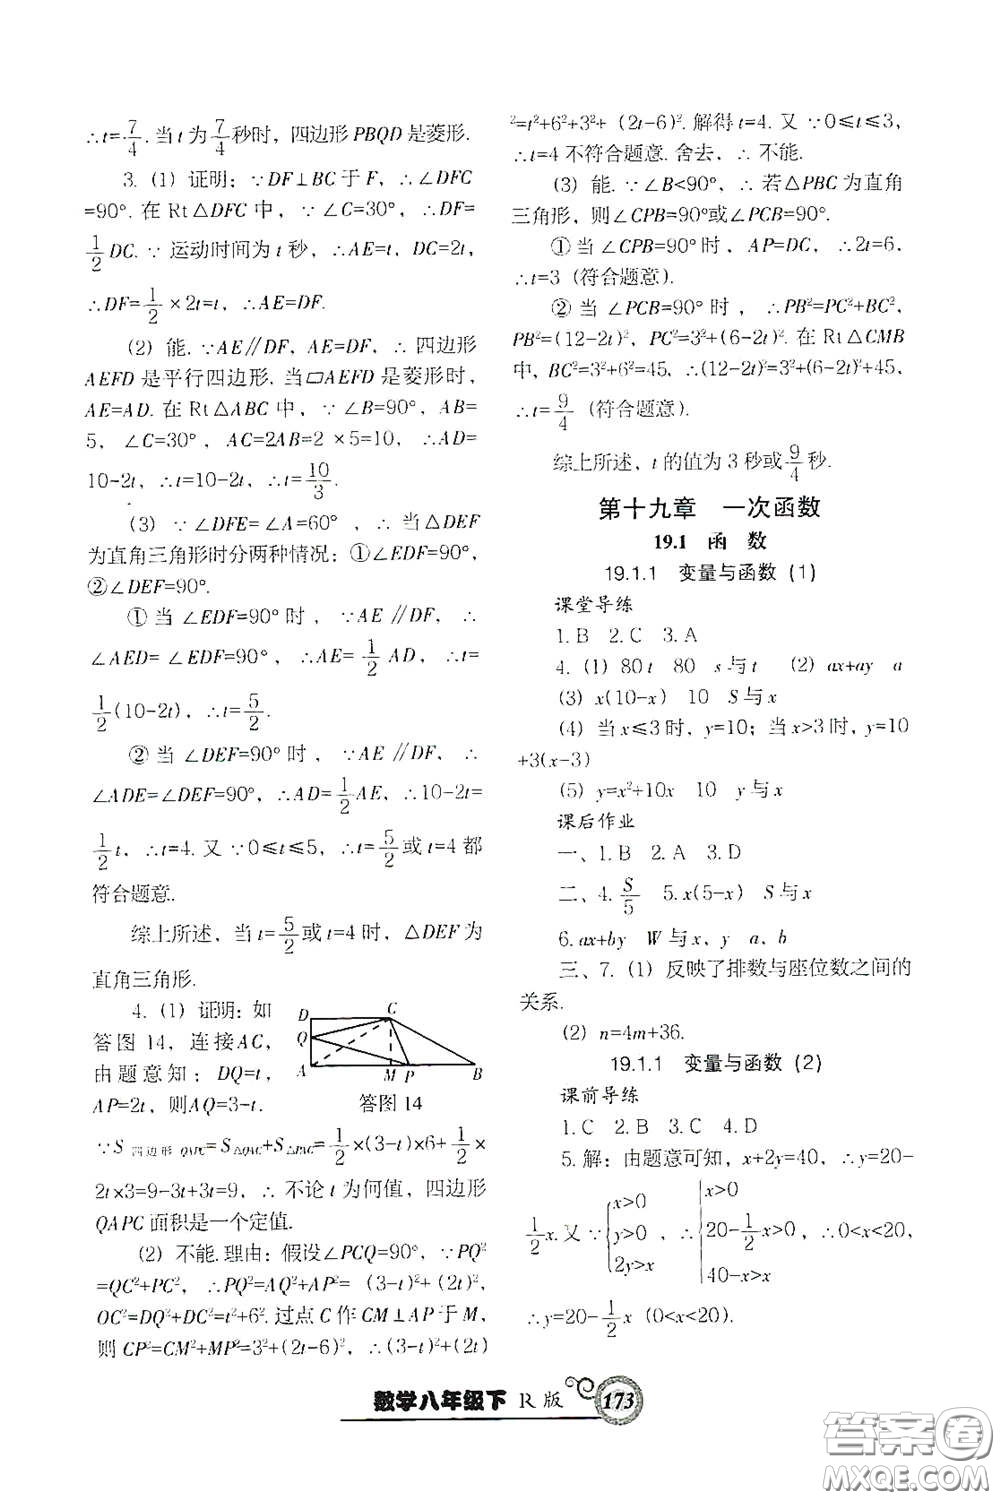 ∴t=7/4. 当 t 为 7/4 秒时，四边形 PBQD 是菱形.
3. (1) 证明：∵DF⊥BC 于 F，∴∠DFC
=90°. 在 Rt△DFC 中，∵∠C=30°，∴DF=
1/2 DC. ∵ 运动时间为 t 秒，∴AE=t，DC=2t，
∴DF=1/2×2t=t，∴AE=DF.
(2) 能. ∵AE∥DF，AE=DF，∴ 四边形
AEFD 是平行四边形. 当▱AEFD 是菱形时，
AE=AD. 在 Rt△ABC 中，∵∠B=90°，AB=
5，∠C=30°，AC=2AB=2×5=10，∴AD=
10-2t，∴t=10-2t，∴t=10/3.
(3) ∵∠DFE=∠A=60°，∴ 当△DEF
为直角三角形时分两种情况：①∠EDF=90°，
②∠DEF=90°.
① 当 ∠EDF=90° 时，∵AE∥DF，∴
∠AED=∠EDF=90°，∴AE=1/2 AD，∴t=
1/2(10-2t)，∴t=5/2.
② 当 ∠DEF=90° 时，∵AE∥DF，∴
∠ADE=∠DEF=90°，∴AD=1/2 AE，∴10-2t=
1/2 t，∴t=4. 又 ∵0⩽t⩽5，∴t=5/2 或 t=4 都
符合题意.
综上所述，当 t=5/2 或 t=4 时，△DEF 为
直角三角形.
4. (1) 证明：如
答图 14，连接AC，
由题意知：DQ=t，
AP=2t，则AQ=3-t.
D C Q A M P B
答图 14
∵S四边形 QAPC=S△QAC+S△PAC=1/2×(3-t)×6+1/2×
2t×3=9-3t+3t=9，∴ 不论 t 为何值，四边形
QAPC 面积是一个定值.
(2) 不能. 理由：假设∠PCQ=90°，∵PQ²
=QC²+PC²，∴PQ²=AQ²+AP²=(3-t)²+(2t)²，
OC²=DQ²+DC²=t²+6². 过点 C 作 CM⊥AP 于 M，
则 CP²=CM²+MP²=3²+(2t-6)²，∴(3-t)²+(2t)
²=t²+6²+3²+(2t-6)². 解得 t=4. 又 ∵0⩽t⩽3，
∴t=4 不符合题意. 舍去，∴ 不能.
(3) 能. ∵∠B<90°，∴ 若△PBC 为直角
三角形，则∠CPB=90°或∠PCB=90°.
① 当 ∠CPB=90° 时，AP=DC，∴2t=6，
∴t=3 (符合题意).
② 当 ∠PCB=90° 时，∴PB²=PC²+BC²，
PB²=(12-2t)²，PC²=3²+(6-2t)². 在 Rt△CMB
中，BC²=3²+6²=45，∴(12-2t)²=3²+(6-2t)²+45，
∴t=9/4 (符合题意).
综上所述，t 的值为 3 秒或 9/4 秒.
第十九章 一次函数
19.1 函 数
19.1.1 变量与函数 (1)
课堂导练
1. B 2. C 3. A
4. (1) 80t 80 s 与 t (2) ax+ay a
(3) x(10-x) 10 S 与 x
(4) 当 x⩽3 时，y=10；当 x>3 时，y=10
+3(x-3)
(5) y=x²+10x 10 y 与 x
课后作业
一、1. B 2. A 3. D
二、4. S/5 5. x(5-x) S 与 x
6. ax+by W 与 x、y a、b
三、7. (1) 反映了排数与座位数之间的
关系.
(2) n=4m+36.
19.1.1 变量与函数 (2)
课前导练
1. C 2. B 3. C 4. D
5. 解：由题意可知，x+2y=40，∴y=20-
1/2 x. 又 ∵{x>0 y>0 2y>x，∴{x>0 20-1/2 x>0 40-x>x，∴0<x<20，
∴y=20-1/2 x (0<x<20).
数学八年级下 R 版 173
答案圈
MXQE.COM